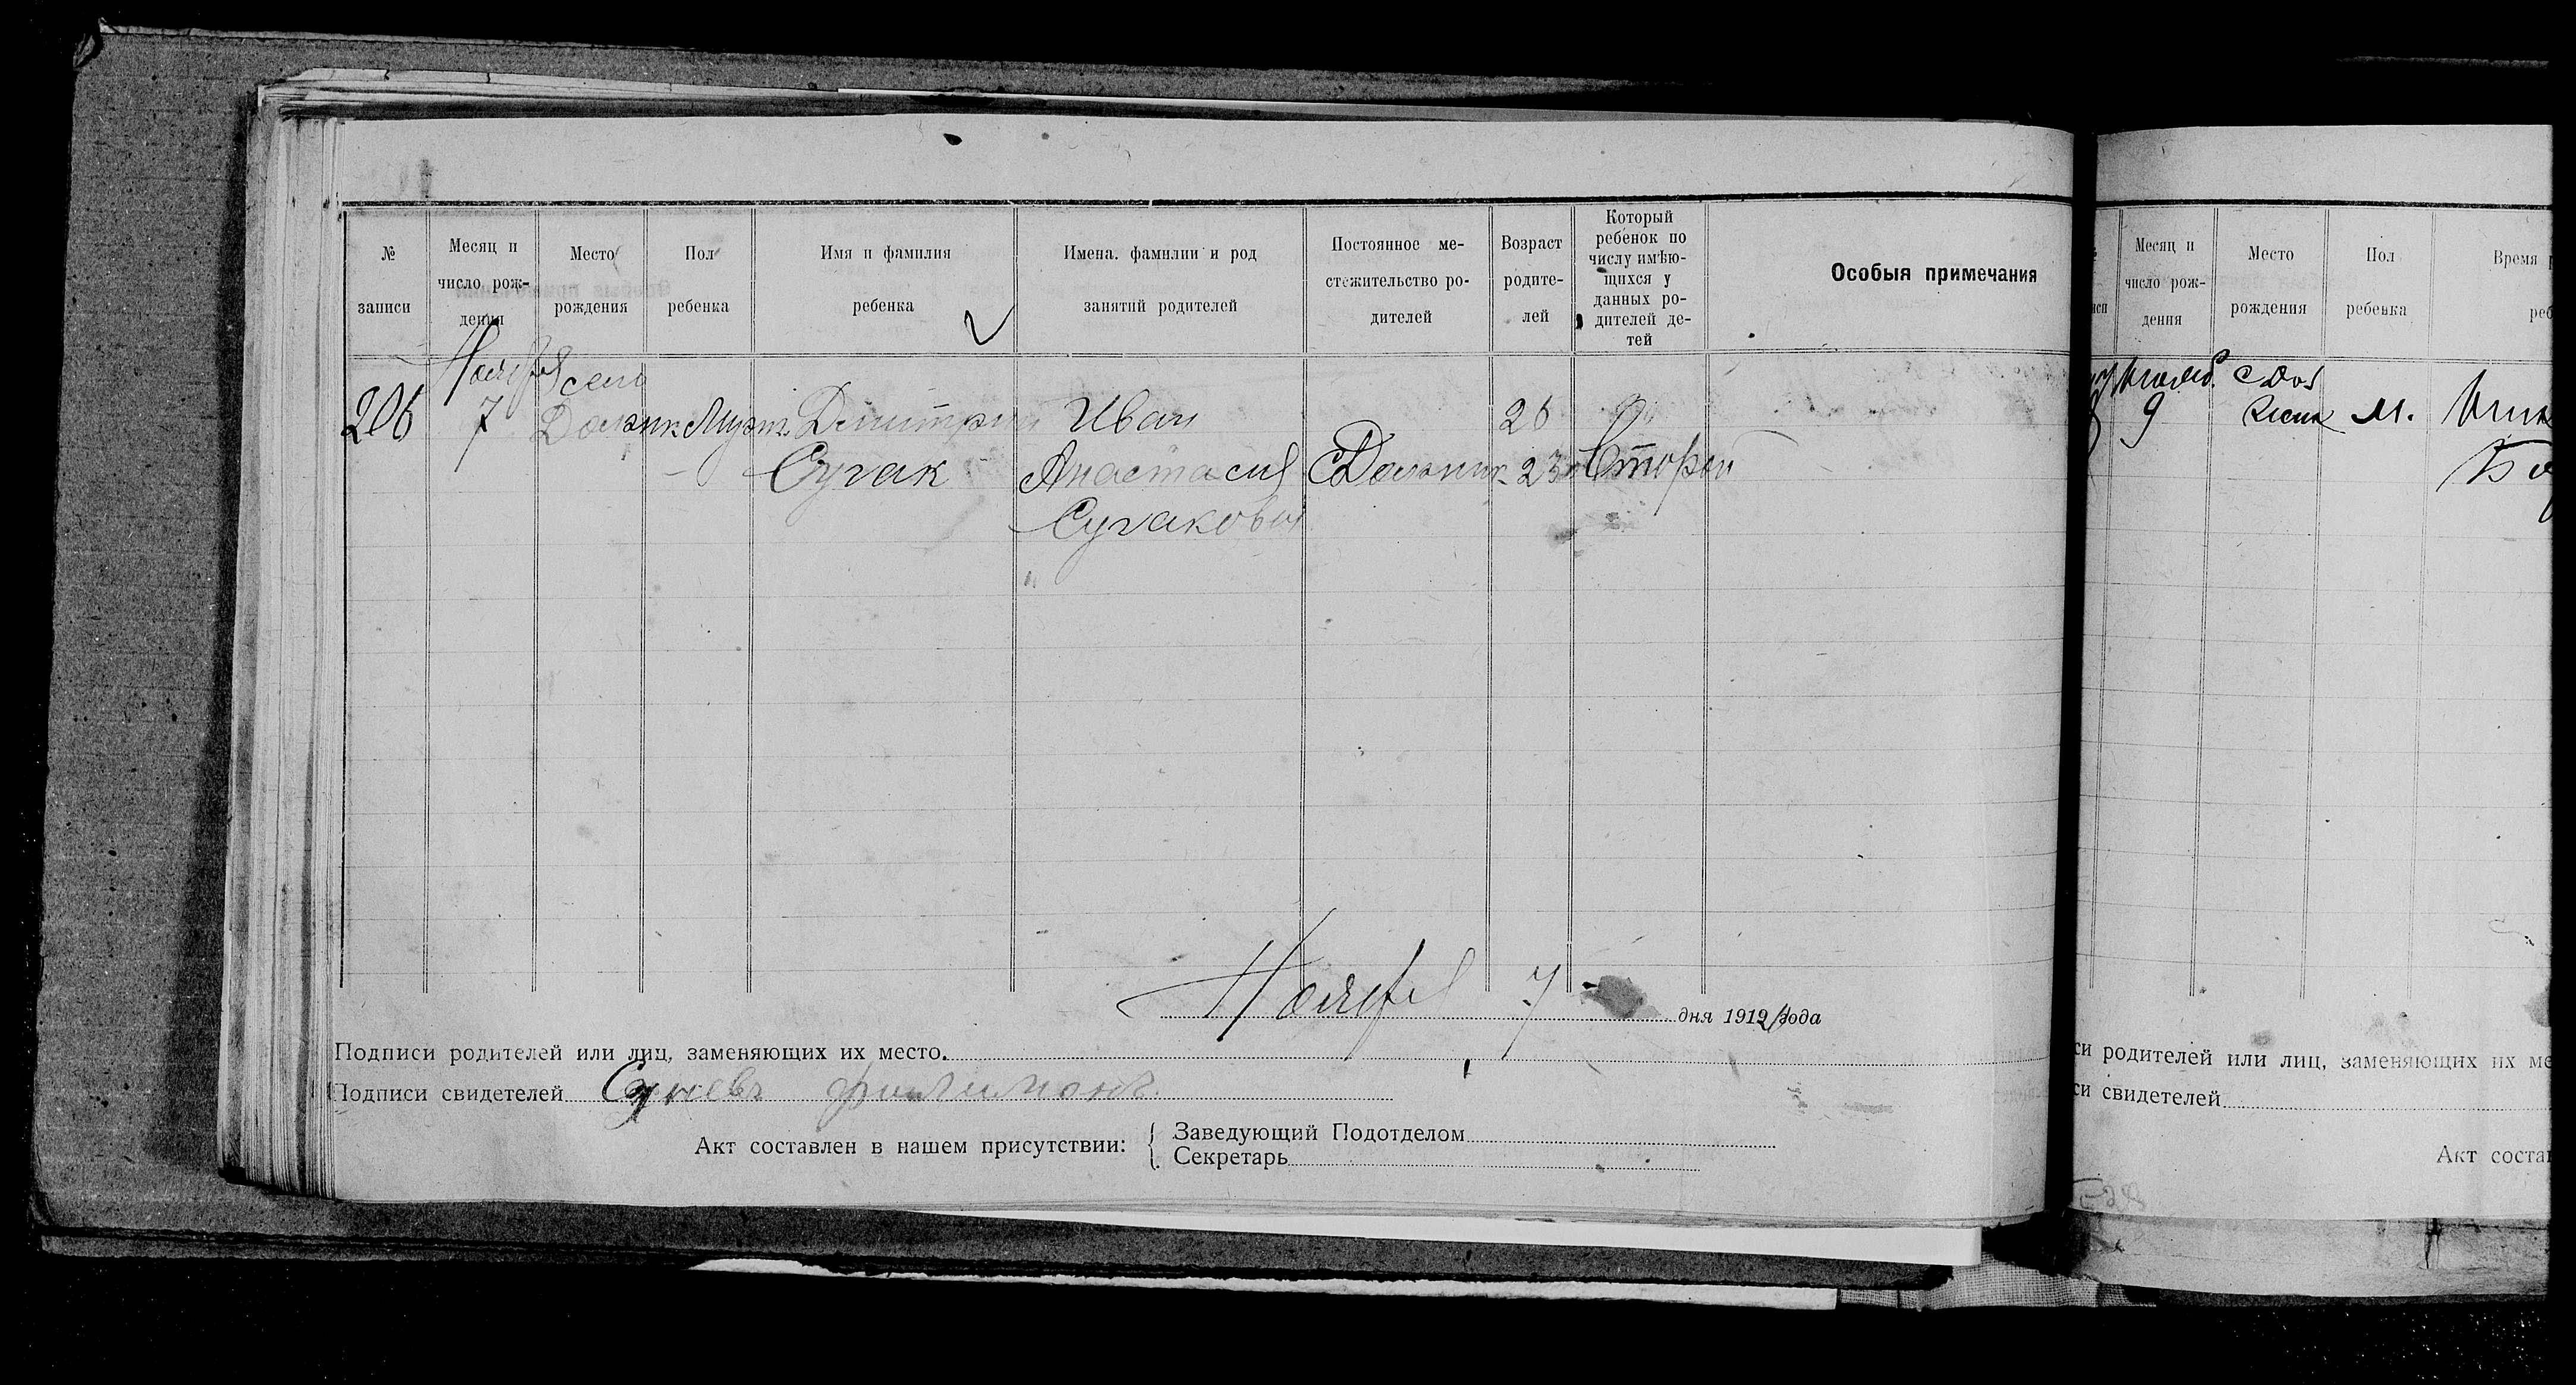 № записи
Месяц и число рождения
Место рождения
Пол ребенка
Имя и фамилия ребенка
Имена, фамилии и род занятий родителей
Постоянное местожительство родителей
Возраст родителей
Который ребенок по числу имѣющихся у данных родителей детей
Особыя примечания
206
Ноября
7
село
Должик
Муж.
Дмитрий
Сугак
Иван
Анастасия
Сугакова
С Должик
26
23
Второй
Ноября 7 дня 1919 года
Подписи родителей или лиц, заменяющих их место
Подписи свидетелей Филимонъ
Акт составлен в нашем присутствии:
Заведующий Подотделом
Секретарь
Месяц и число рождения
Место рождения
Пол ребенка
Время
9
м.
си родителей или лиц, заменяющих их ме
си свидетелей
Акт состав